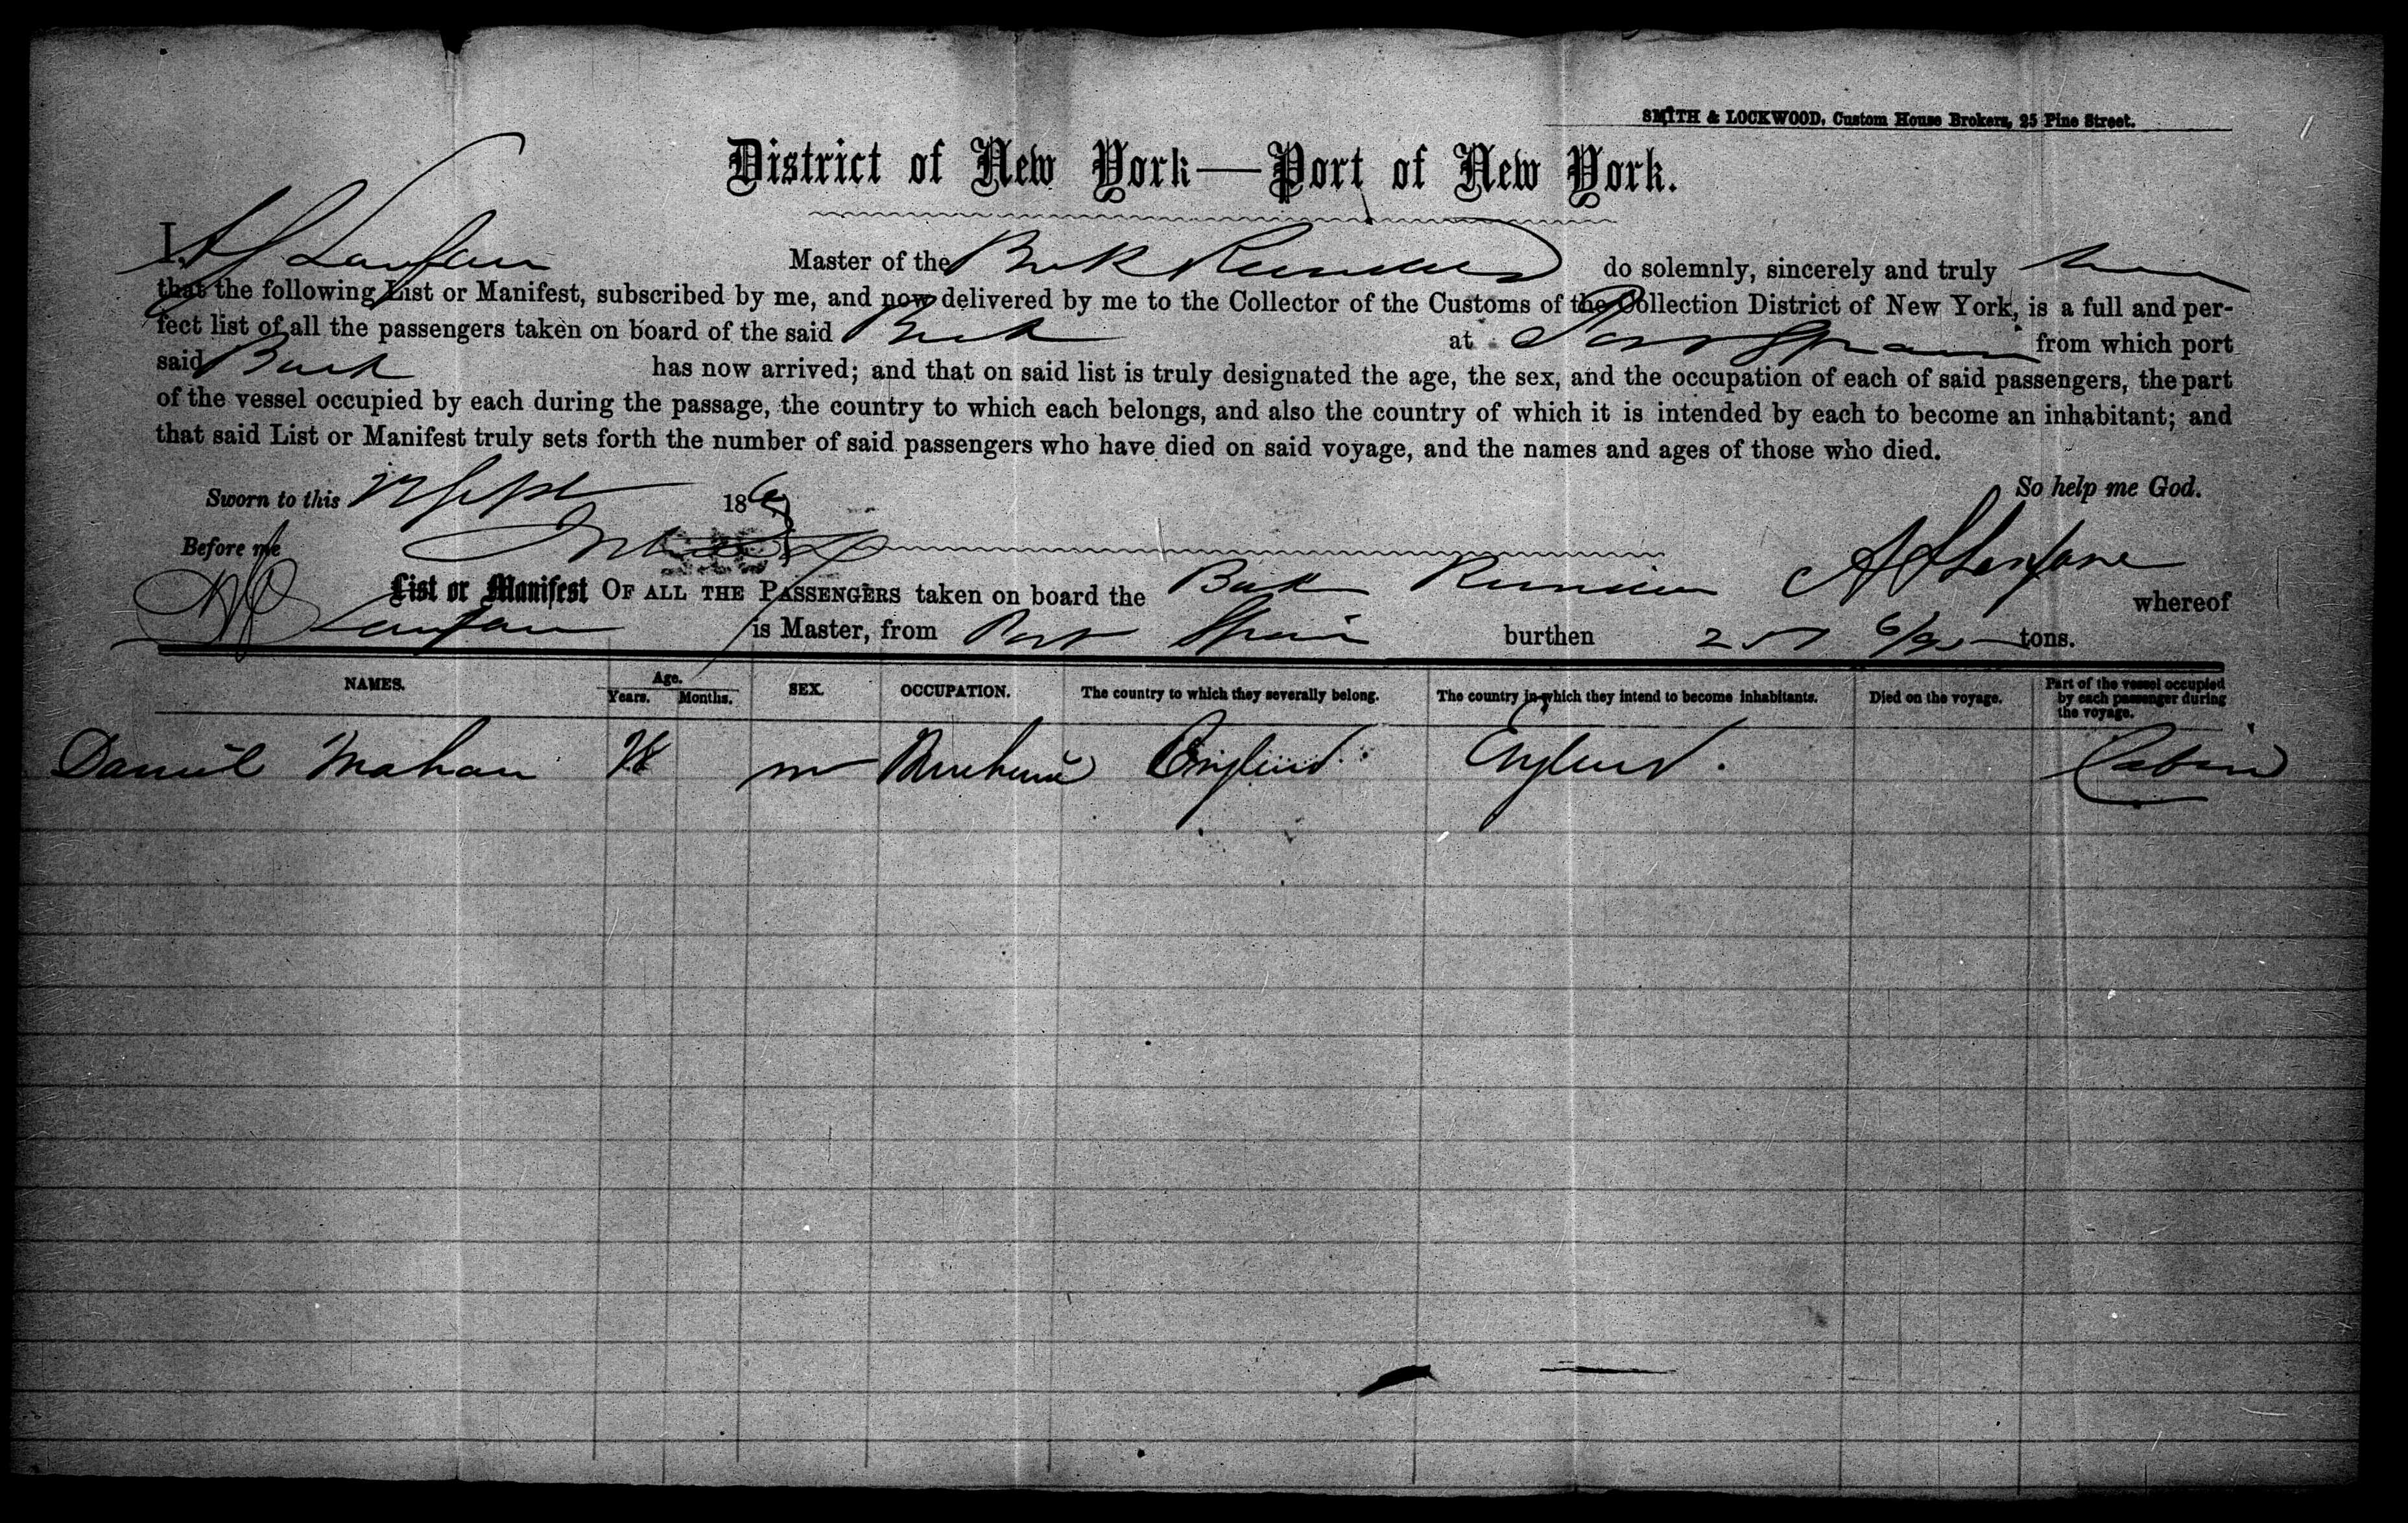 SMITH & LOCKWOOD, Custom House Brokers, 25 Pine Street.
District of New York—Port of New York.
I, Master of the do solemnly, sincerely and truly
that the following List or Manifest, subscribed by me, and now delivered by me to the Collector of the Customs of the Collection District of New York, is a full and per-
fect list of all the passengers taken on board of the said Bark at Port Spain from which port
said Bark has now arrived; and that on said list is truly designated the age, the sex, and the occupation of each of said passengers, the part
of the vessel occupied by each during the passage, the country to which each belongs, and also the country of which it is intended by each to become an inhabitant; and
that said List or Manifest truly sets forth the number of said passengers who have died on said voyage, and the names and ages of those who died.
Sworn to this Sept 186 So help me God.
Before me
List or Manifest OF ALL THE PASSENGERS taken on board the Bark whereof
is Master, from Port Spain burthen tons.
NAMES. Age. Years. Months. SEX. OCCUPATION. The country to which they severally belong. The country in which they intend to become inhabitants. Died on the voyage. Part of the vessel occupied by each passenger during the voyage.
Daniel Mahan m England England. Cabin